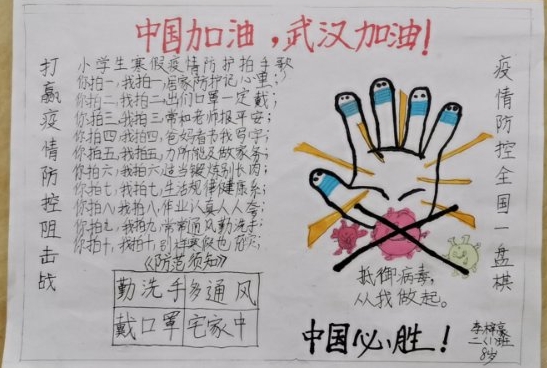 中国加油,武汉加油!
打赢疫情防控阻击战
小学生寒假疫情防护拍手歌
你拍一,我拍一,居家防护记心里;
你拍二,我拍二,出门口罩一定戴;
你拍三,我拍三,常和老师报平安;
你拍四,我拍四,爸妈我写字;
你拍五,我拍五,力所能及做家务;
你拍六,我拍六,适当锻炼别长肉;
你拍七,我拍七,生活规律健康;
你拍八,我拍八,作业认真人人夸;
你拍九,我拍九,常常通风勤洗手;
你拍十,我拍十,别样寒假也充实。
《防范须知》
勤洗手 多通风
戴口罩 宅家中
疫情防控全国一盘棋
抵御病毒,
从我做起。
中国必胜!
李梓
二(1)班
8岁